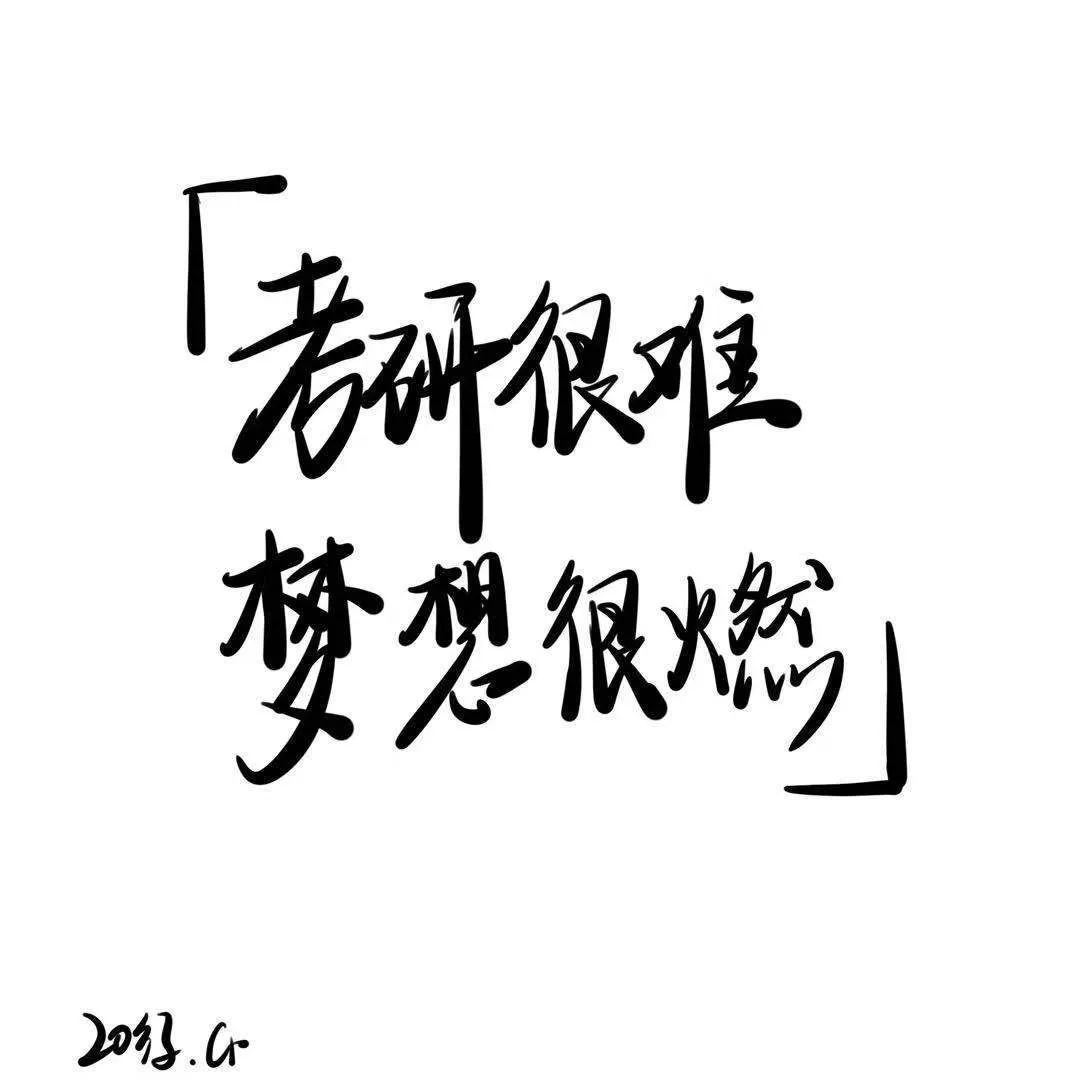 「考研很难
梦想很燃」